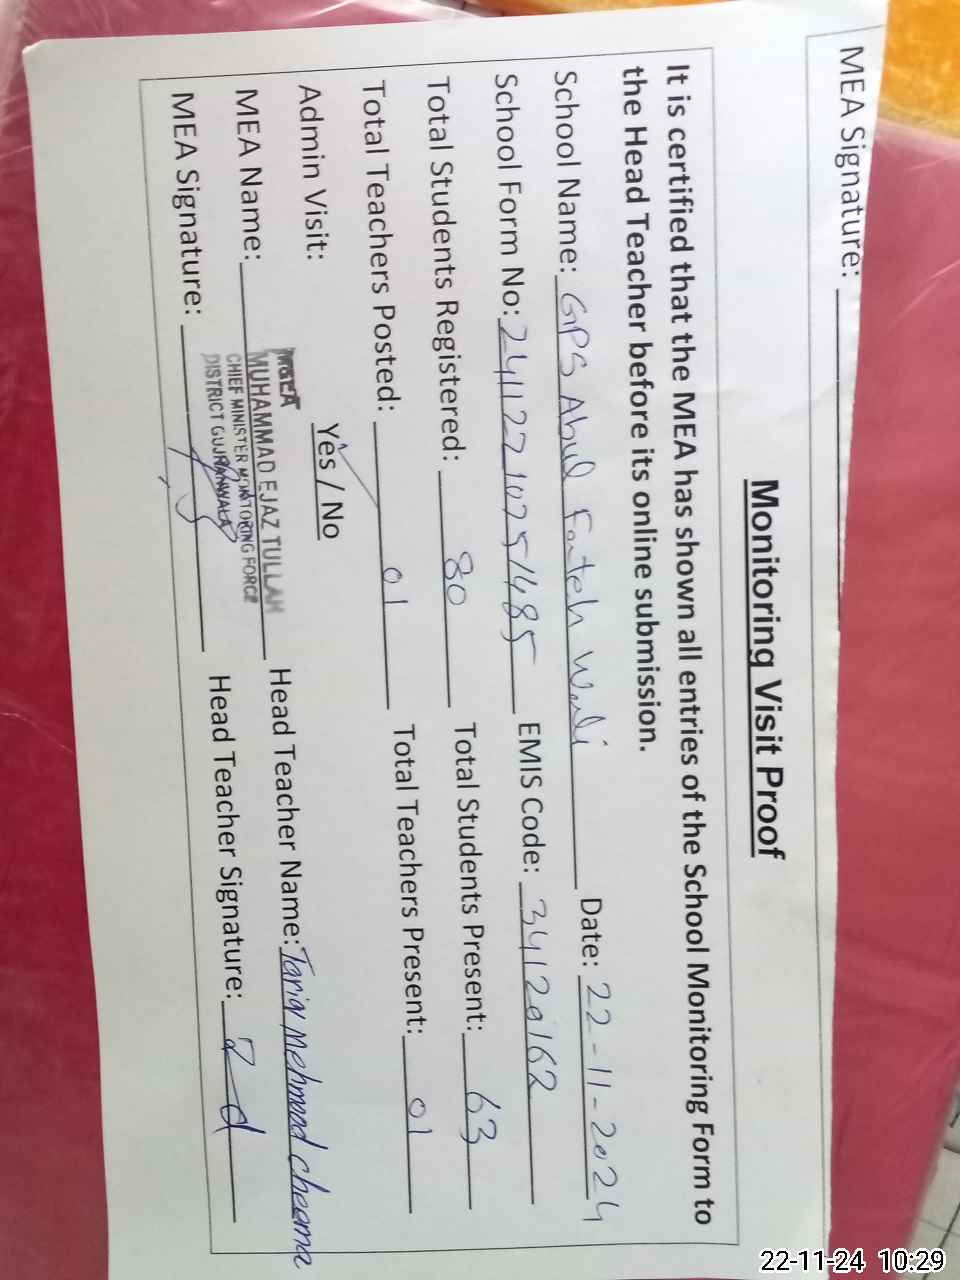 MEA Signature:
Monitoring Visit Proof
It is certified that the MEA has shown all entries of the School Monitoring Form to
the Head Teacher before its online submission.
School Name: GPS Abul Fateh Wali Date: 22-11-2024
School Form No: 241122 1075 1485 EMIS Code: 34120162
Total Students Registered: 80 Total Students Present: 63
Total Teachers Posted: 01 Total Teachers Present: 01
Admin Visit: Yes / No
MEA
MEA Name: MUHAMMAD EJAZ TULLAH Head Teacher Name: Tariq Mehmood cheema
CHIEF MINISTER MONITORING FORCE
DISTRICT GUJRANWALA
MEA Signature: Head Teacher Signature:
22-11-24 10:29